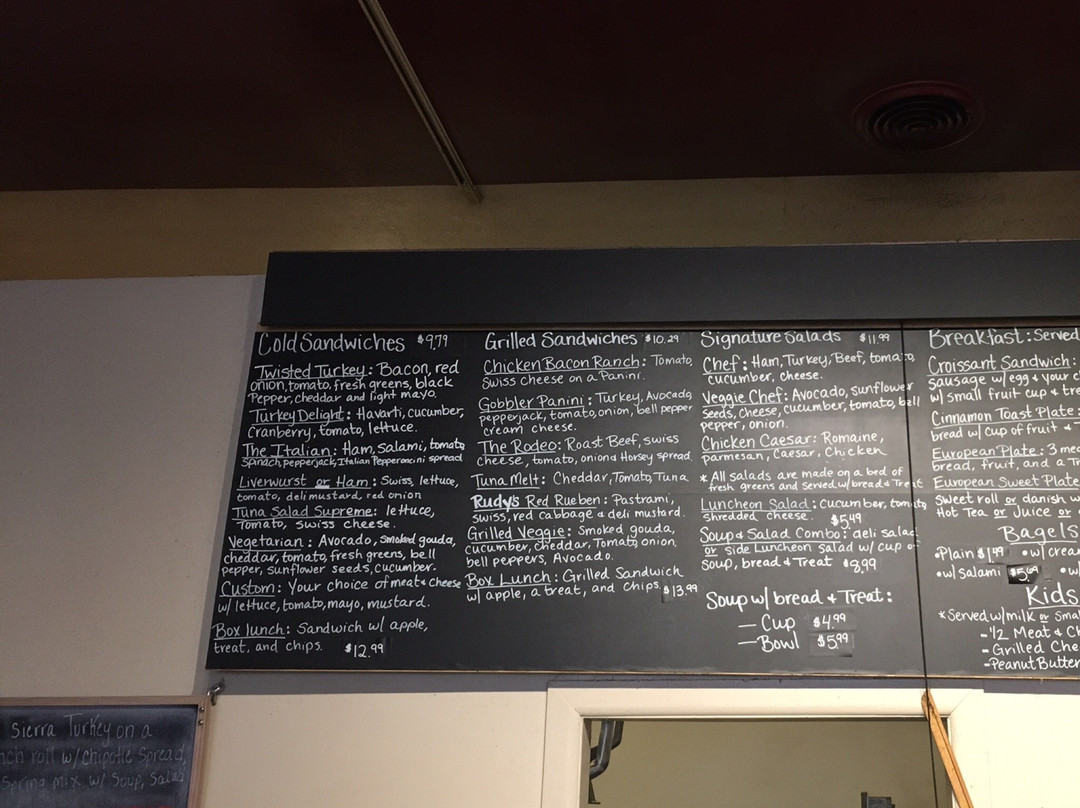 Cold Sandwiches $9.79
Twisted Turkey: Bacon, red
onion, tomato, fresh greens, black
Pepper, cheddar and light mayo.
Turkey Delight: Havarti, cucumber,
Cranberry, tomato, lettuce.
The Italian: Ham, Salami, tomato
Spinach, pepperjack, Italian Pepperoncini spread
Liverwurst or Ham: Swiss, lettuce,
tomato, deli mustard, red onion
Tuna Salad Supreme: lettuce,
Tomato, swiss cheese.
Vegetarian: Avocado, Smoked gouda,
cheddar, tomato, fresh greens, bell
pepper, sunflower seeds, cucumber.
Custom: Your choice of meat & cheese
w/ lettuce, tomato, mayo, mustard.
Box lunch: Sandwich w/ apple,
treat, and chips. $12.99
Grilled Sandwiches $10.29
Chicken Bacon Ranch: Tomato,
Swiss cheese on a Panini.
Gobbler Panini: Turkey, Avocado,
pepperjack, tomato, onion, bell pepper
cream cheese.
The Rodeo: Roast Beef, swiss
cheese, tomato, onion & Horsey spread.
Tuna Melt: Cheddar, Tomato, Tuna
Rudy's Red Rueben: Pastrami,
swiss, red cabbage & deli mustard.
Grilled Veggie: Smoked gouda,
cucumber, cheddar, Tomato, onion,
bell peppers, Avocado.
Box Lunch: Grilled Sandwich
w/ apple, a treat, and chips. $13.99
Signature Salads $11.99
Chef: Ham, Turkey, Beef, tomato,
cucumber, cheese.
Veggie Chef: Avocado, sunflower
seeds, cheese, cucumber, tomato, bell
pepper, onion.
Chicken Caesar: Romaine,
parmesan, Caesar, Chicken
*All salads are made on a bed of
fresh greens and served w/ bread & Treat
Luncheon Salad: cucumber, tomato
shredded cheese. $5.49
Soup & Salad Combo: deli salad
or side Luncheon salad w/ cup of
soup, bread & Treat $8.99
Soup w/ bread & Treat:
- Cup $4.99
- Bowl $5.99
Breakfast: Served
Croissant Sandwich:
sausage w/ egg & your
w/ small fruit cup &
Cinnamon Toast Plate:
bread w/ cup of fruit &
European Plate: 3
bread, fruit, and a
European Sweet Plate
Sweet roll or danish
Hot Tea or Juice or
Bagels
•Plain $1.99 •w/ cream
•w/ Salami
Kids
*Served w/ milk or
-1/2 Meat &
-Grilled
-Peanut Butter
Sierra Turkey on a
roll w/ chipotle Spread,
Spring mix w/ Soup, Salad